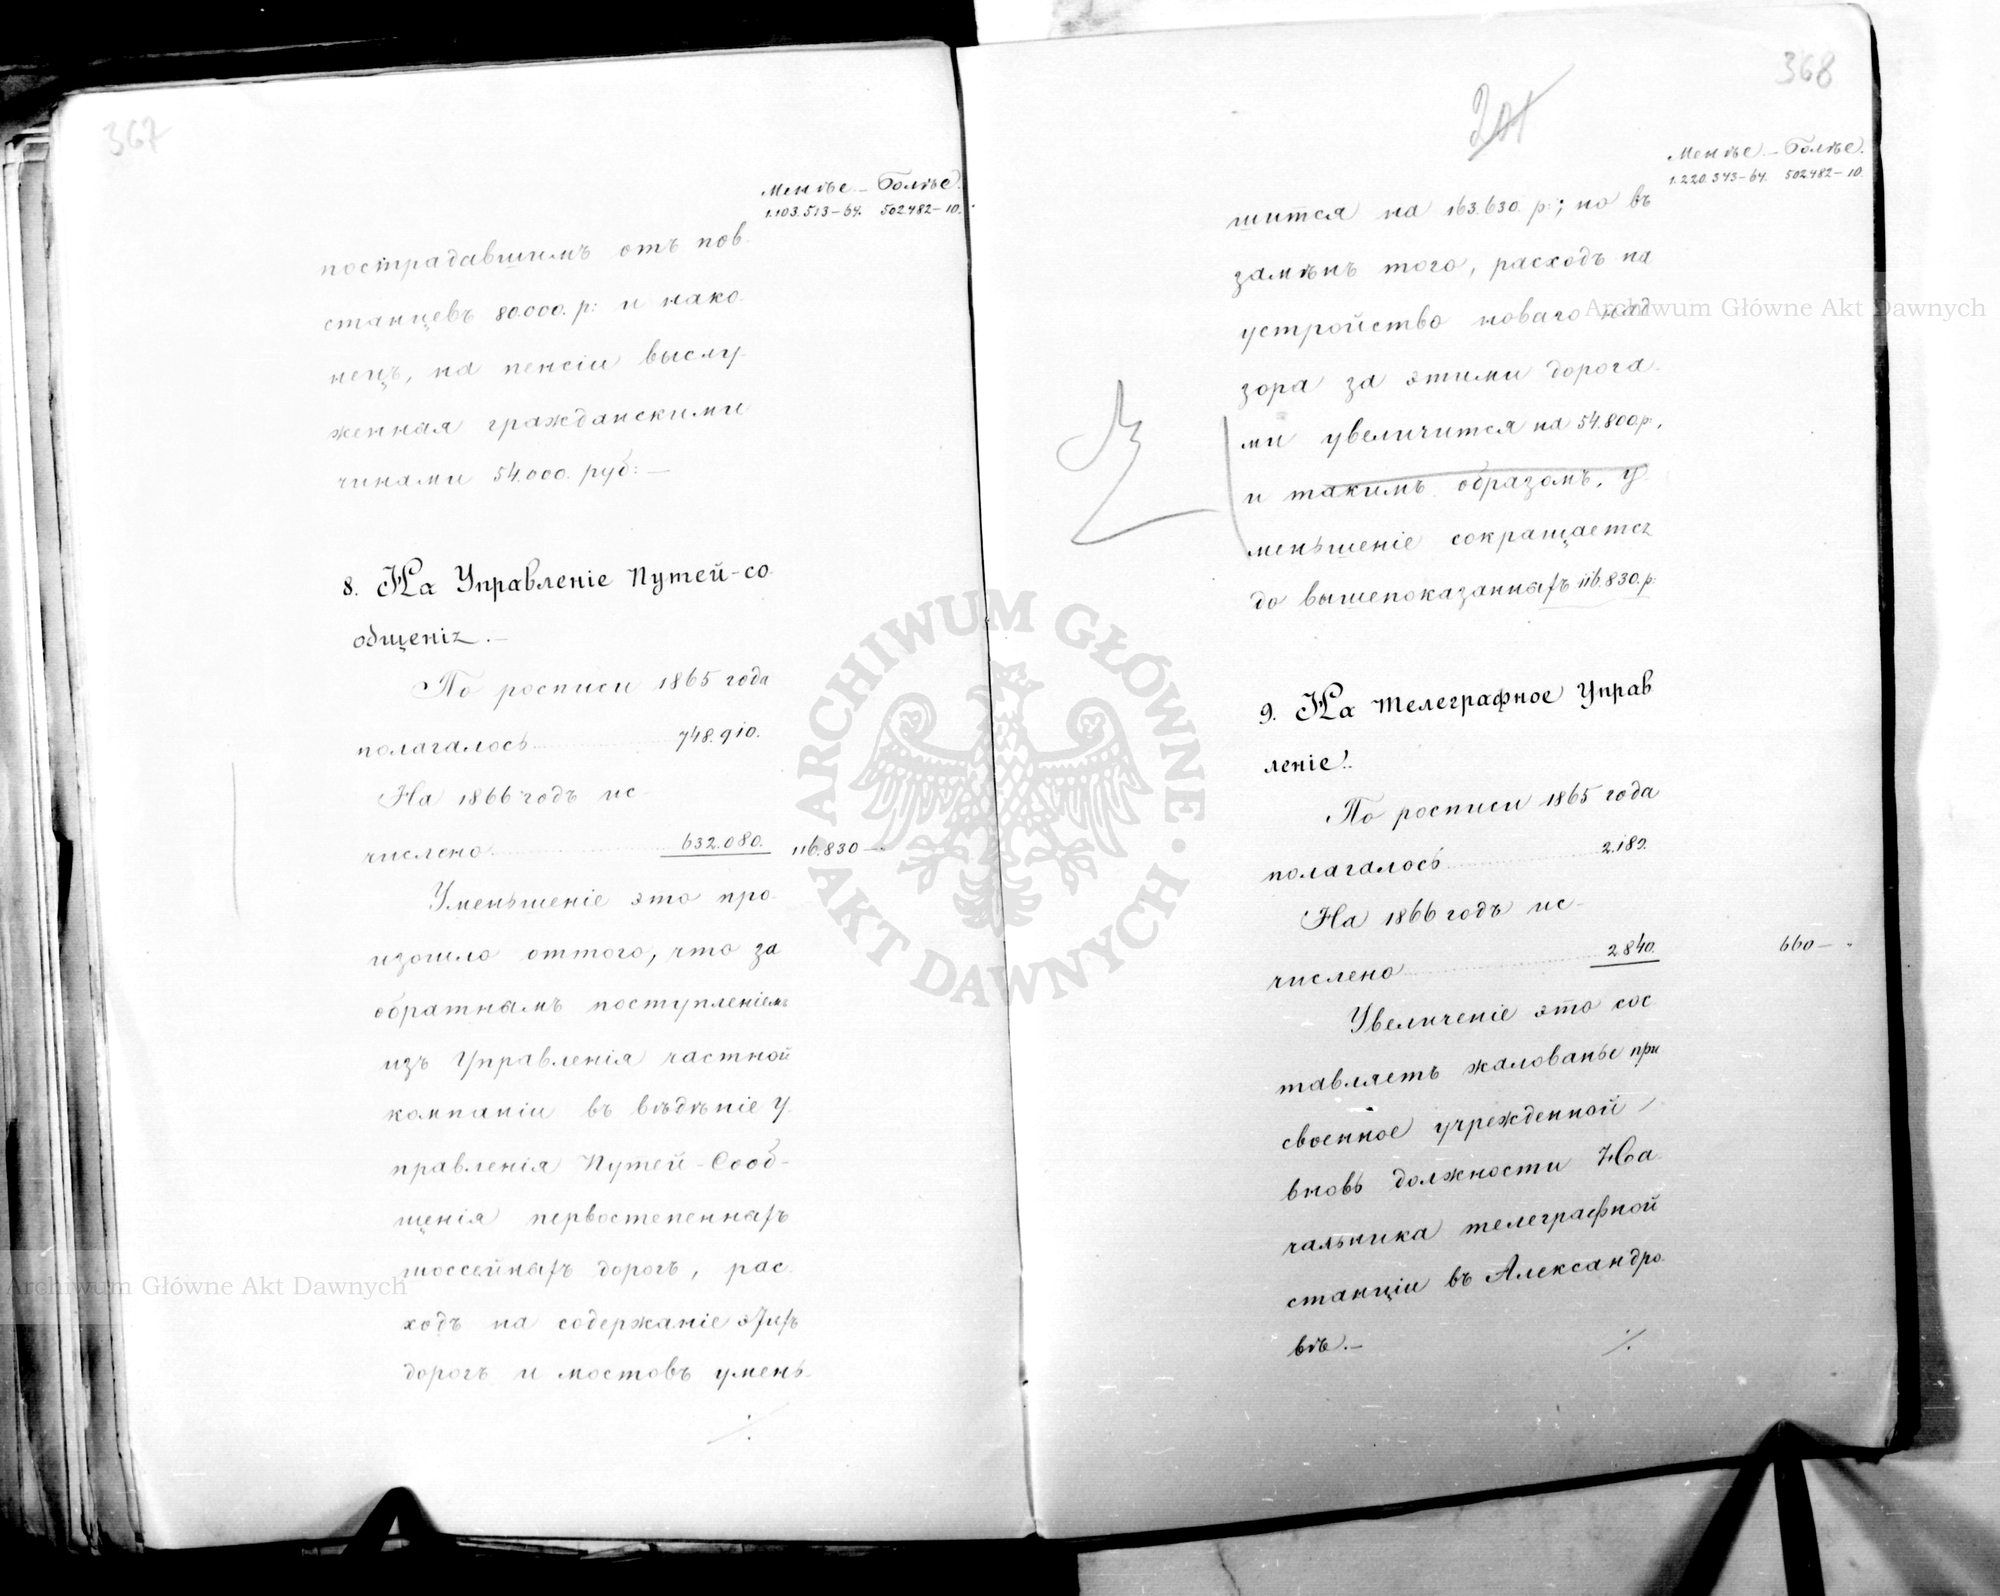 367
Менѣе – Болѣе.
1.103.513–64. 502.482–10.
пострадавшимъ отъ пов-
станцевъ 80.000. р: и нако-
нецъ, на пенсіи выслу-
женная гражданскими
чинами 54.000. руб: —
8. На Управленіе Путей-со-
общенія. —
По росписи 1865 года
полагалось 748.910.
На 1866 годъ ис-
числено 632.080. 116.830 — "
Уменьшеніе это про-
изошло оттого, что за
обратнымъ поступленіемъ
изъ Управленія частной
компаніи въ вѣдѣніе У-
правленія Путей-Сооб-
щенія первостепенныхъ
шоссейныхъ дорогъ, рас-
ходъ на содержаніе этихъ
дорогъ и мостовъ умень-
./.
368
Менѣе – Болѣе.
1.220.343–64. 502.482–10.
шится на 163.630. р:; но въ
замѣнъ того, расходъ на
устройство новаго над-
зора за этими дорога-
ми увеличится на 54.800 р:,
и такимъ образомъ, у-
меньшеніе сокращается
до вышепоказанныхъ 116.830. р:
9. На Телеграфное Управ-
леніе.
По росписи 1865 года
полагалось 2.180.
На 1866 годъ ис-
числено 2840. 660 — "
Увеличеніе это сос-
тавляетъ жалованье при-
своенное учрежденной
вновь должности На-
чальника телеграфной
станціи въ Александро-
вѣ. —
./.
ARCHIWUM GŁÓWNE AKT DAWNYCH
Archiwum Główne Akt Dawnych
Archiwum Główne Akt Dawnych